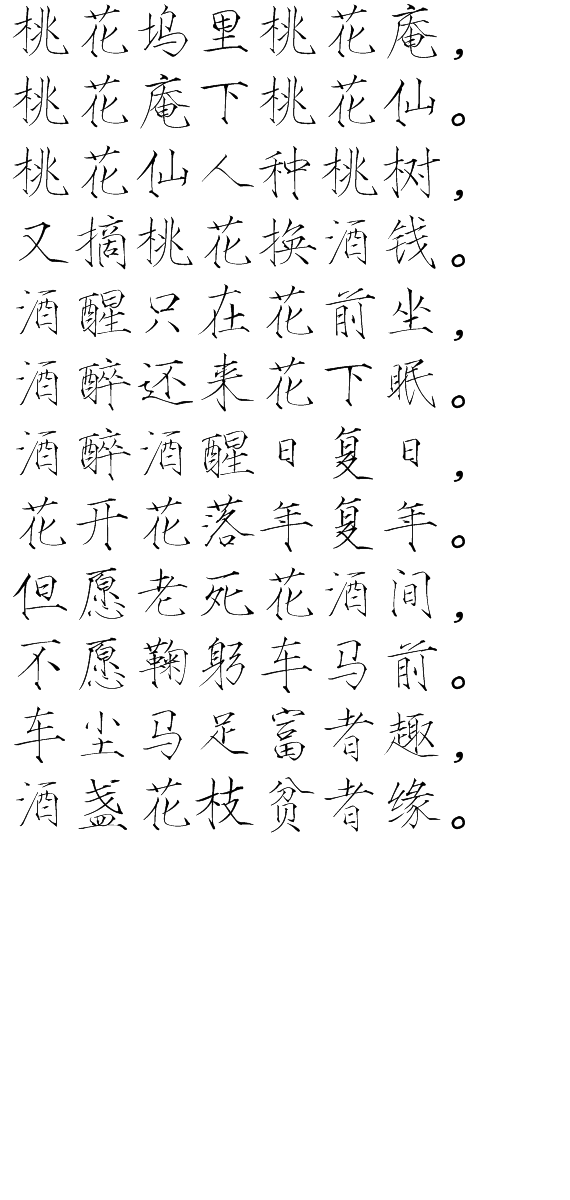 桃花坞里桃花庵，
桃花庵下桃花仙。
桃花仙人种桃树，
又摘桃花换酒钱。
酒醒只在花前坐，
酒醉还来花下眠。
酒醉酒醒日复日，
花开花落年复年。
但愿老死花酒间，
不愿鞠躬车马前。
车尘马足富者趣，
酒盏花枝贫者缘。